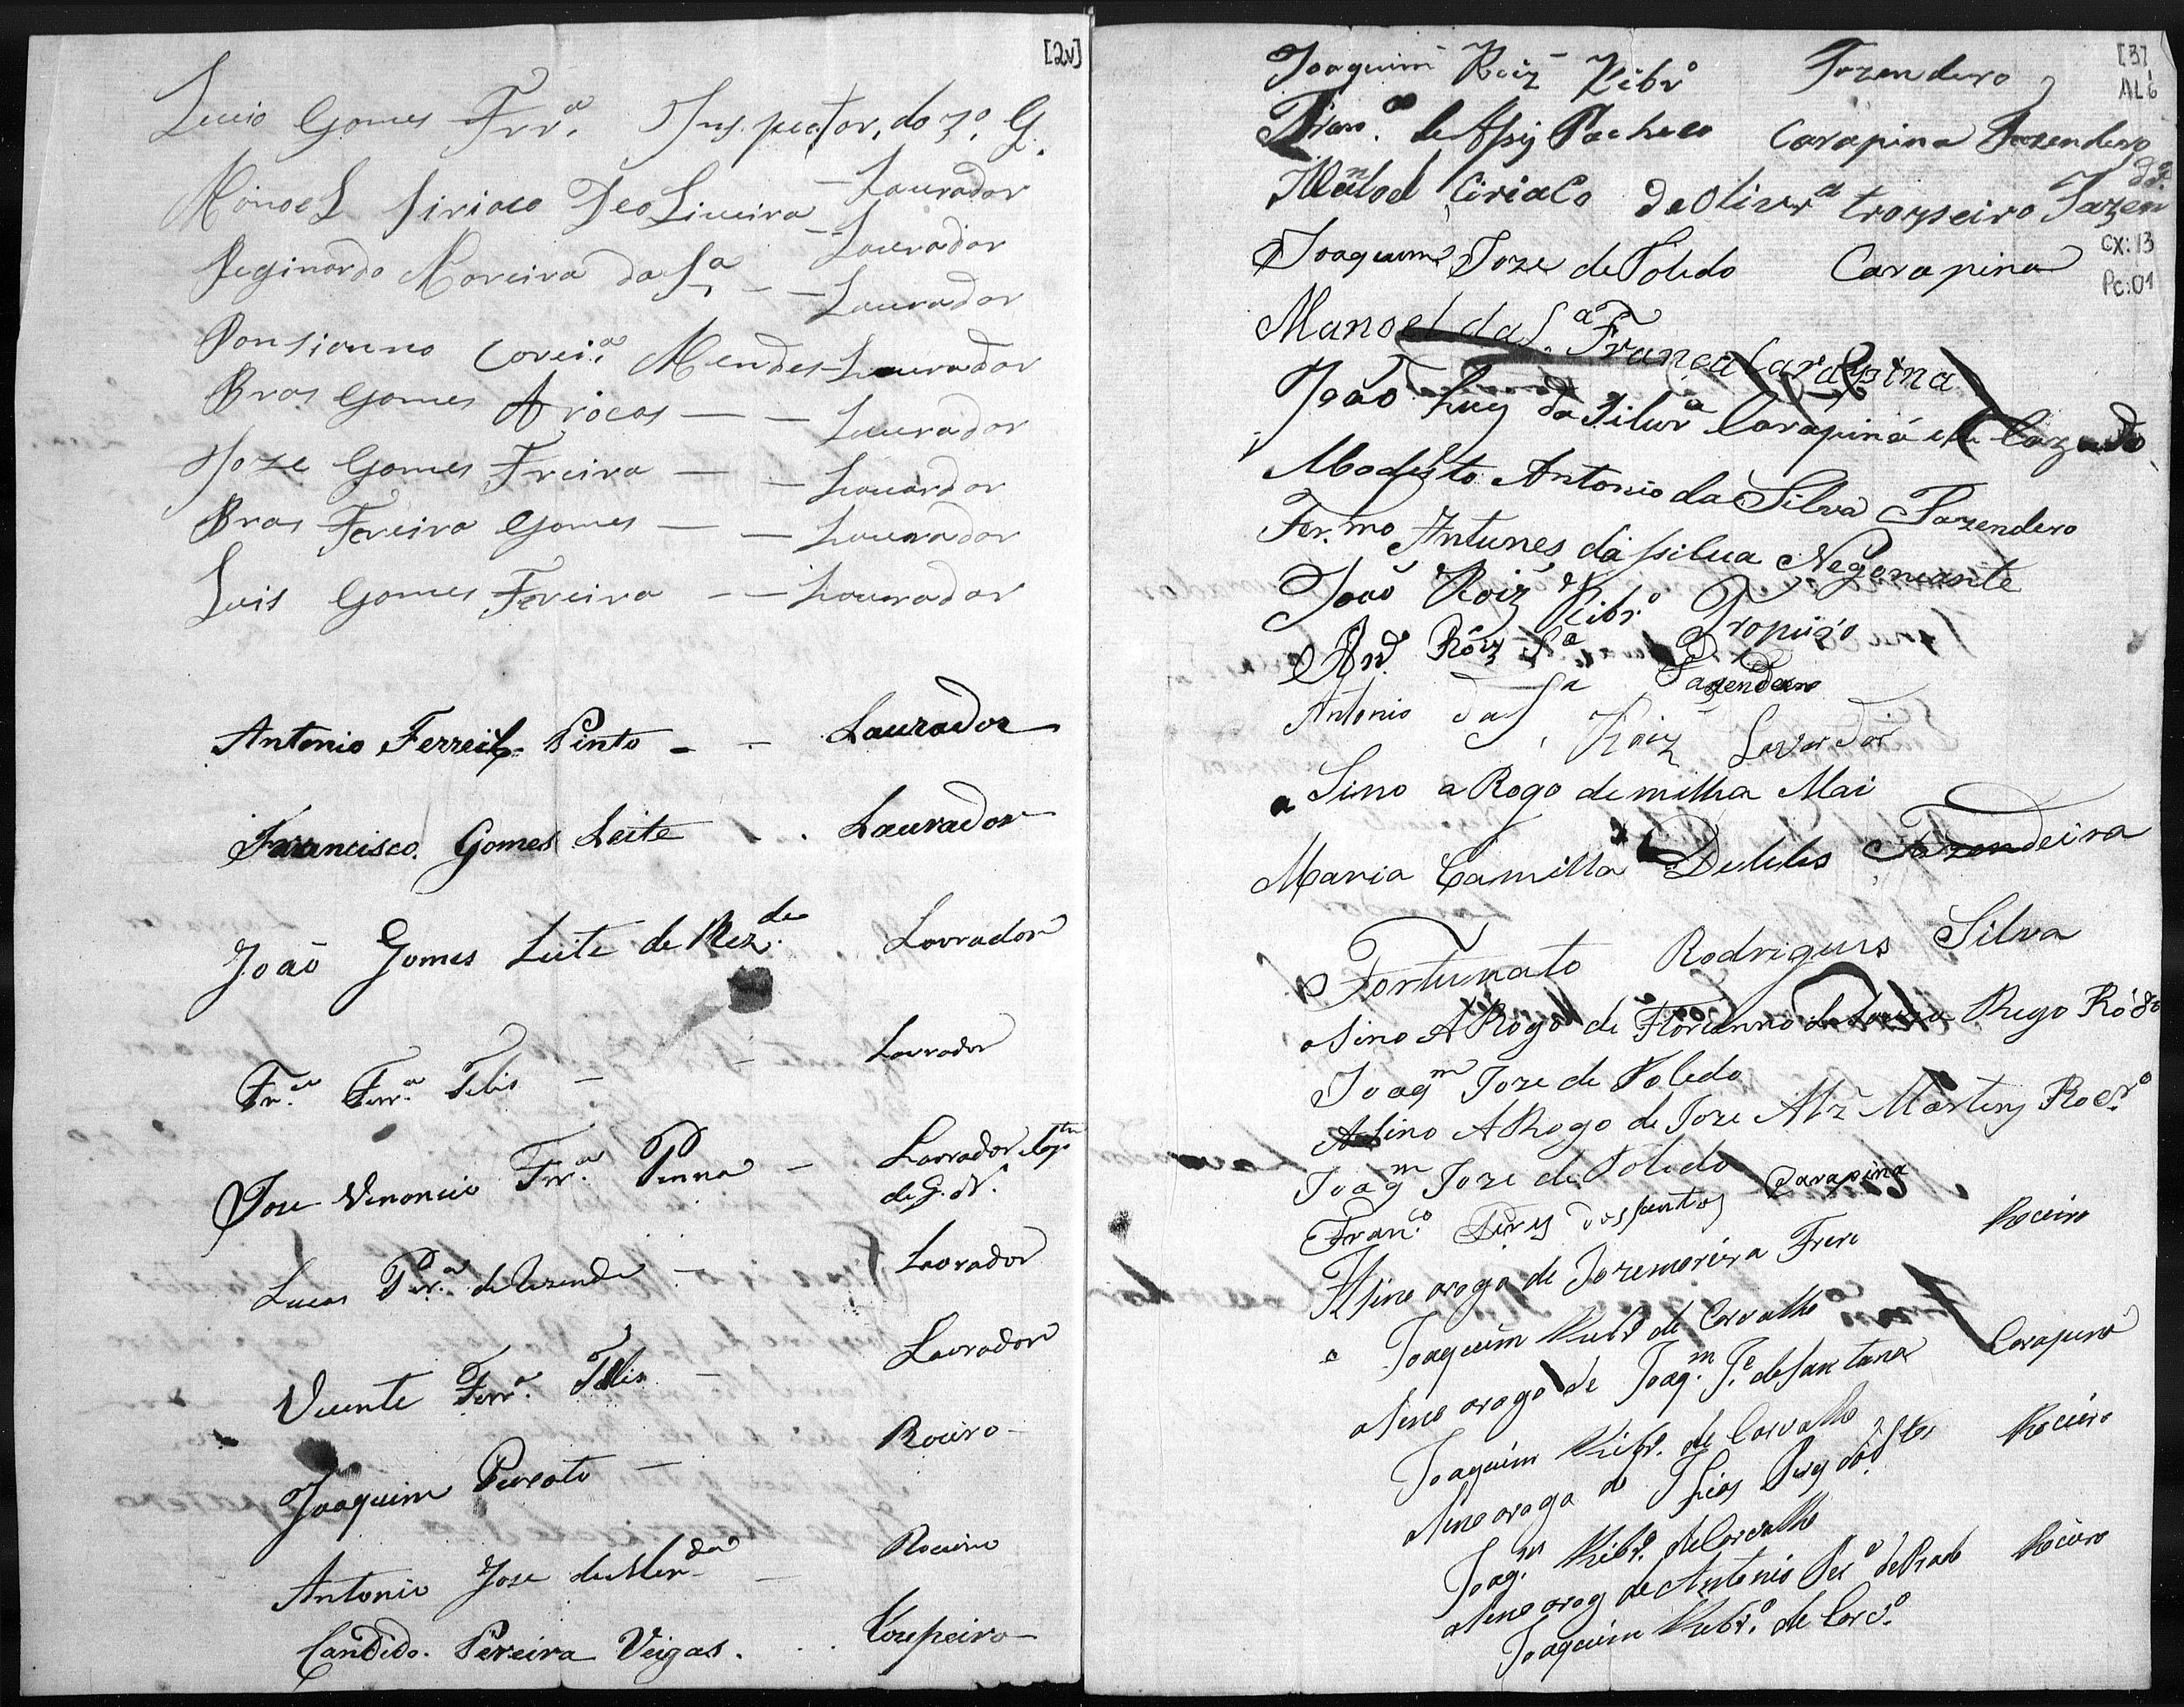 [2v]
Lucio Gomes Frr.ª Inspector, do 3º. G.
Manoel Siriaco DeoLiveira - Laurador
Reginardo Moreira da Sª -- Laurador
- Laurador
Ponsianno Correi.ª Mendes Laurador
Bras Gomes Arocas - - Laurador
Joze Gomes Freira - - Lauardor
Bras Fereira Gomes - - Laurador
Luis Gomes Fereira - - Laurador
Antonio Ferreira Pinto - - Laurador
Francisco Gomes Leite . . Laurador
João Gomes Leite de Rez.de Lavrador
Fr.co Ferr.ª Telis - - Lavrador
Jose Venancio Frr.ª Penna - Lavrador e Cap.tm
de G. N.
Lucas Per.ª de Rezende - Lavrador
Vicente Ferr.ª Telis - Lavrador
Joaquim - Roceiro -
Antonio Jose de - Roceiro
Candido. Pereira Veigas. . . -
[3]
AL6
Joaquim Roiz Ribrº Fazendero
Fran.co de Assis Pacheco Carapina Fazendero
Manoel Ciriaco de Olivrª Fazen
d.º
CX:13
Pc:01
Joaquim Joze de Toledo Carapina
Manoel da S.ª França Carapina
João Luiz da Silvrª Carapina e Cazado
Modesto Antonio da Silva Fazendero
Fer.mo Antunes da silua Negociante
João Roiz Ribrº Tropeiro
An.º Roiz S.ª Fazendero
Antonio da Sª Roiz Lavrador
a Sino a Rogo de milha Mai
Maria Camilla Deteles Fazendeira
Fortunato Rodrigues Silva
asino A Rogo de Florianno de Souza Rego
Joaqm Joze de Toledo
Asino A Rogo de Joze Alz Martins Rocrº
Joaqm Joze de Toledo
Fran.co Pires dos santos Carapina
Asino arogo de Jozemoreira Frere Roceiro
Joaquim Ribr.º de Carvalho
Asino arogo de Joaq.m J.e de Santana Carapina
Joaquim Ribr.º de Carvalho
Asino arogo de dos Stos Roceiro
Joaq.m Ribr.º de Carvalho
Asino arog de Antonio de Prado Roceiro
Joaquim Ribr.º de Carv.º